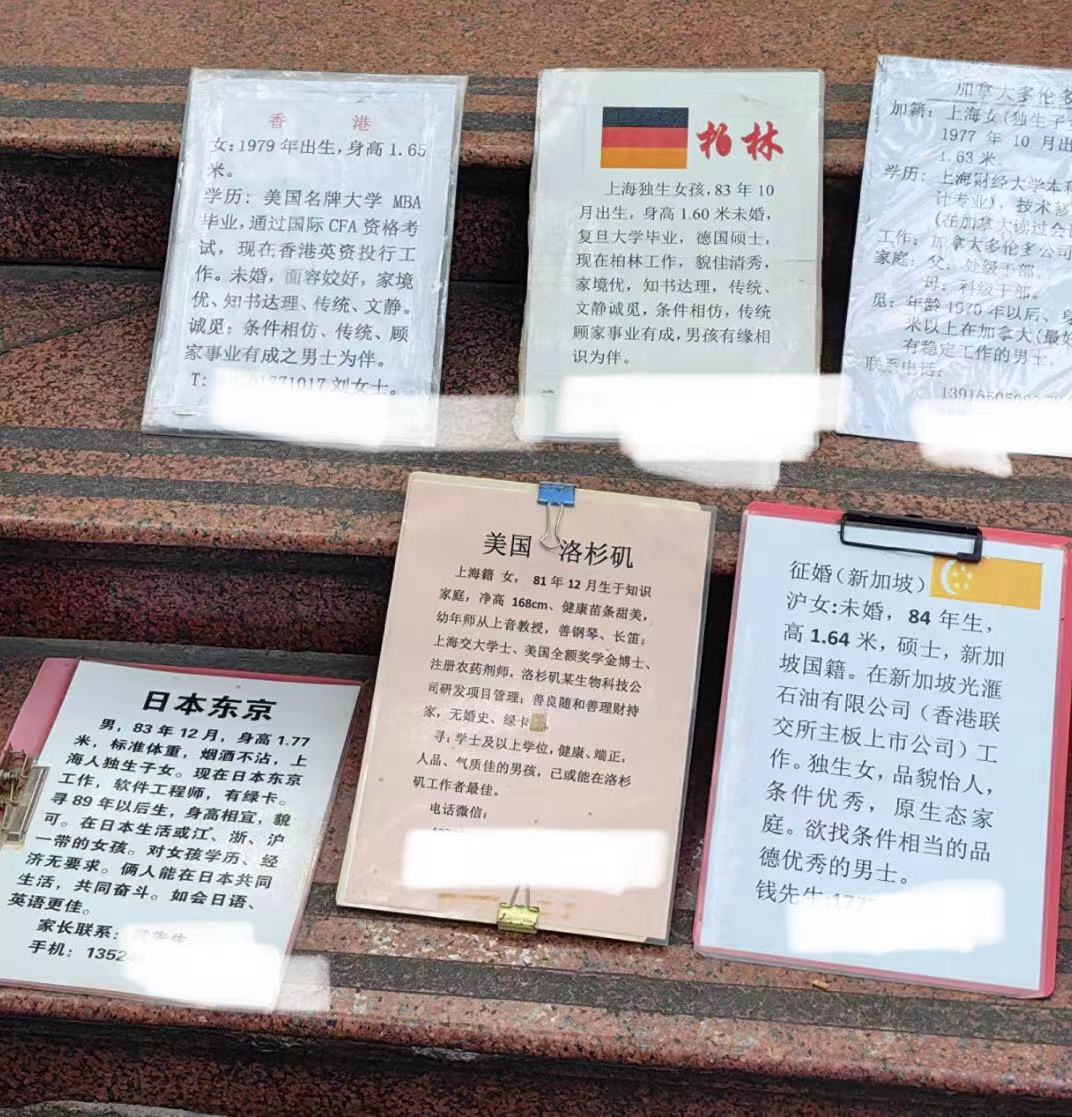 香 港
女:1979年出生,身高1.65
米。
学历:美国名牌大学 MBA
毕业,通过国际CFA资格考
试,现在香港英资投行工
作。未婚,面容姣好,家境
优、知书达理、传统、文静。
诚觅:条件相仿、传统、顾
家事业有成之男士为伴。
T: 刘女士。
柏林
上海独生女孩,83年10
月出生,身高1.60米未婚,
复旦大学毕业,德国硕士,
现在柏林工作,貌佳清秀,
家境优,知书达理,传统、
文静诚觅,条件相仿,传统
顾家事业有成,男孩有缘相
识为伴。
加拿大多伦多
加籍:上海女(独生子
1977年10月出
1.63米、
学历:上海财经大学本科
计专业),技术移
(在加拿大读过会计
工作:加拿大多伦多公司
家庭:父:处级干部。
母:科级干部。
觅:年龄1970年以后、身
米以上在加拿大(最好
有稳定工作的男士。
联系电话:
日本东京
男,83年12月,身高1.77
米,标准体重,烟酒不沾,上
海人独生子女。现在日本东京
工作,软件工程师,有绿卡。
寻89年以后生,身高相宜,貌
可。在日本生活或江、浙、沪
一带的女孩。对女孩学历、经
济无要求。俩人能在日本共同
生活,共同奋斗。如会日语、
英语更佳。
家长联系:
手机:13524
美国 洛杉矶
上海籍 女, 81年12月生于知识
家庭,净高 168cm、健康苗条甜美,
幼年师从上音教授,善钢琴、长笛;
上海交大学士、美国全额奖学金博士、
注册农药剂师,洛杉矶某生物科技公
司研发项目管理;善良随和善理财持
家,无婚史、绿卡
寻:学士及以上学位,健康、端正,
人品、气质佳的男孩,已或能在洛杉
矶工作者最佳。
电话微信:
征婚(新加坡)
沪女:未婚,84年生,
高1.64米,硕士,新加
坡国籍。在新加坡光滙
石油有限公司(香港联
交所主板上市公司)工
作。独生女,品貌怡人,
条件优秀,原生态家
庭。欲找条件相当的品
德优秀的男士。
钱先生:177